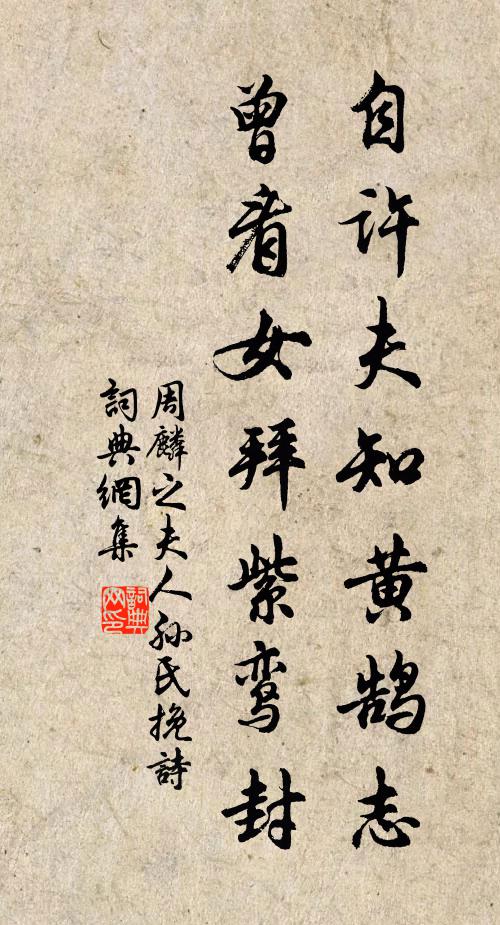 自许夫知黄鹄志
曾看女拜紫鸾封
周麟之夫人孙氏挽詩
詞典網集
詞典网印